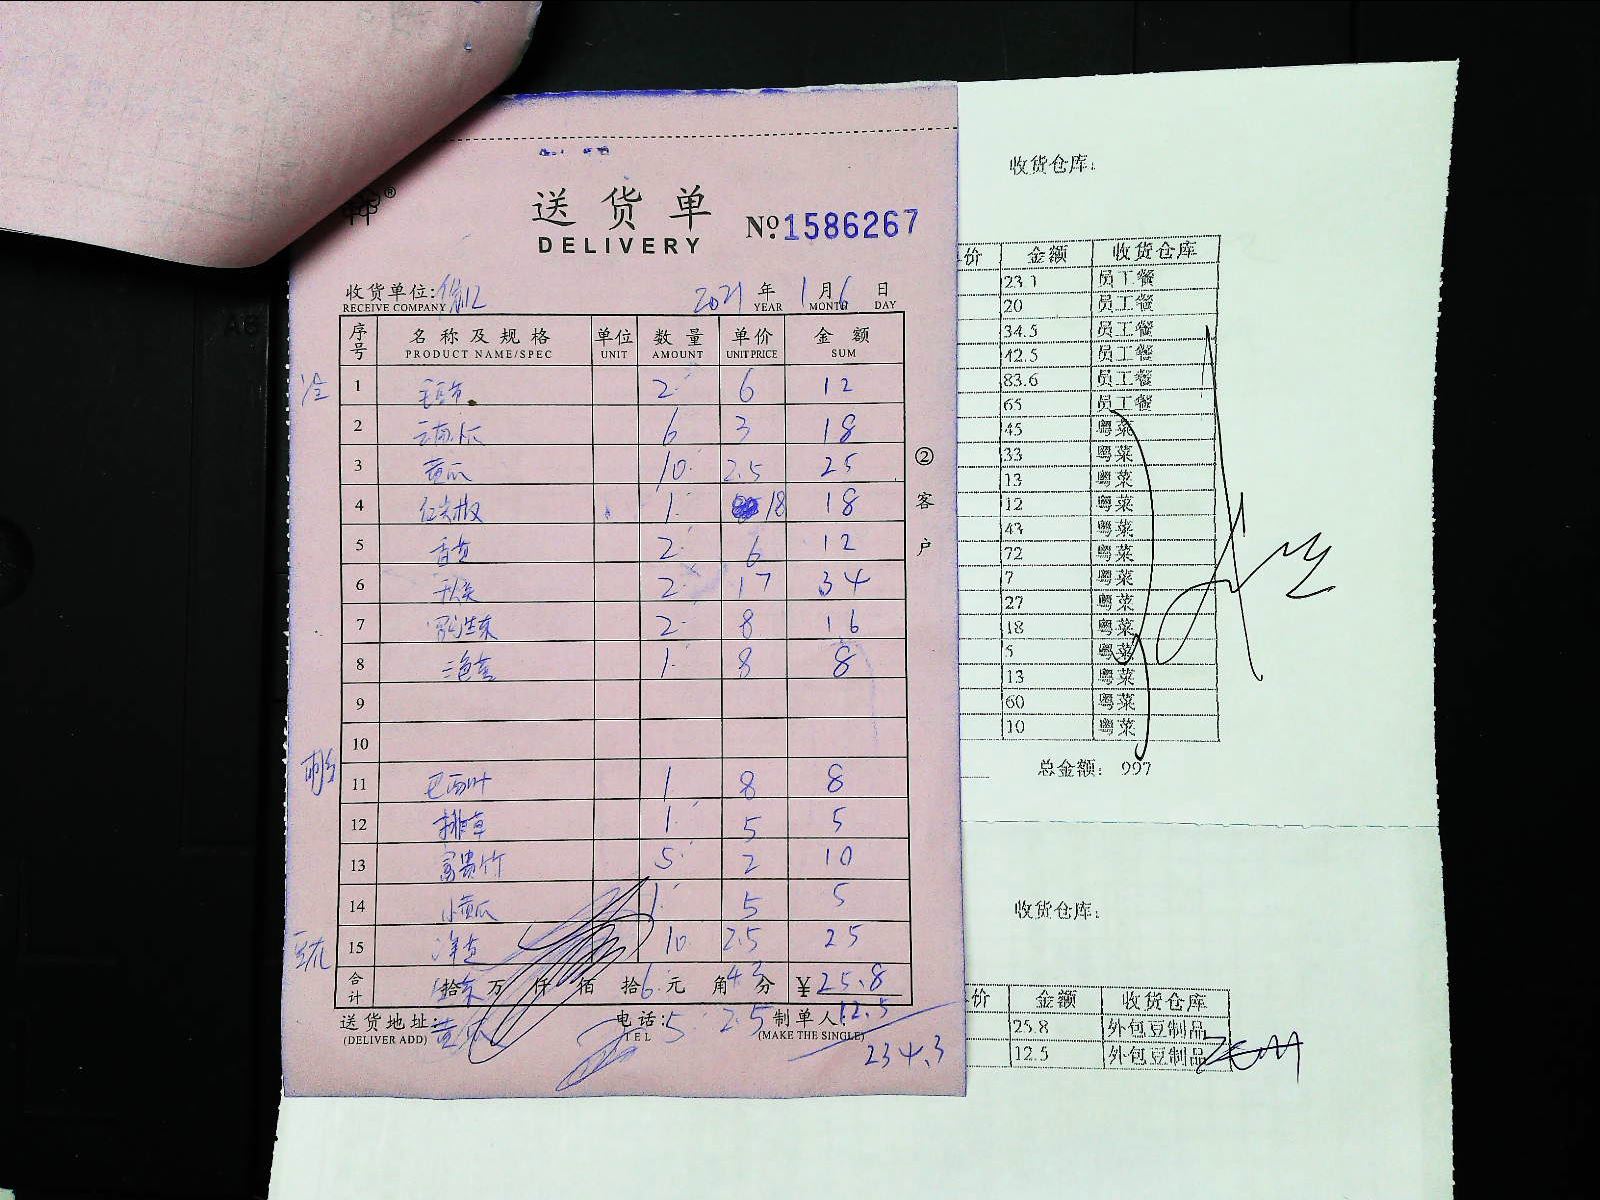 送货单
DELIVERY
№1586267
收货单位:
RECEIVE COMPANY
2021 年 1 月 6 日
YEAR MONTH DAY
序号 名称及规格 单位 数量 单价 金额
PRODUCT NAME/SPEC UNIT AMOUNT UNIT PRICE SUM
1 2 6 12
2 6 3 18
3 黄瓜 10 2.5 25
4 红尖椒 1 18 18
5 2 6 12
6 2 17 34
7 2 8 16
8 1 8 8
9
10
11 巴西叶 1 8 8
12 排草 1 5 5
13 富贵竹 5 2 10
14 小黄瓜 1 5 5
15 10 2.5 25
合计 拾 万 仟 佰 拾 6 元 角 4.3 分 ¥ 25.8
送货地址: 黄瓜 电话: 5 2.5 制单人: 12.5
(DELIVER ADD) TEL (MAKE THE SINGLE)
234.3
②客户
收货仓库:
价 金额 收货仓库
23.1 员工餐
20 员工餐
34.5 员工餐
42.5 员工餐
83.6 员工餐
65 员工餐
45 粤菜
33 粤菜
13 粤菜
12 粤菜
43 粤菜
72 粤菜
7 粤菜
27 粤菜
18 粤菜
5 粤菜
13 粤菜
60 粤菜
10 粤菜
总金额: 997
收货仓库:
价 金额 收货仓库
25.8 外包豆制品
12.5 外包豆制品